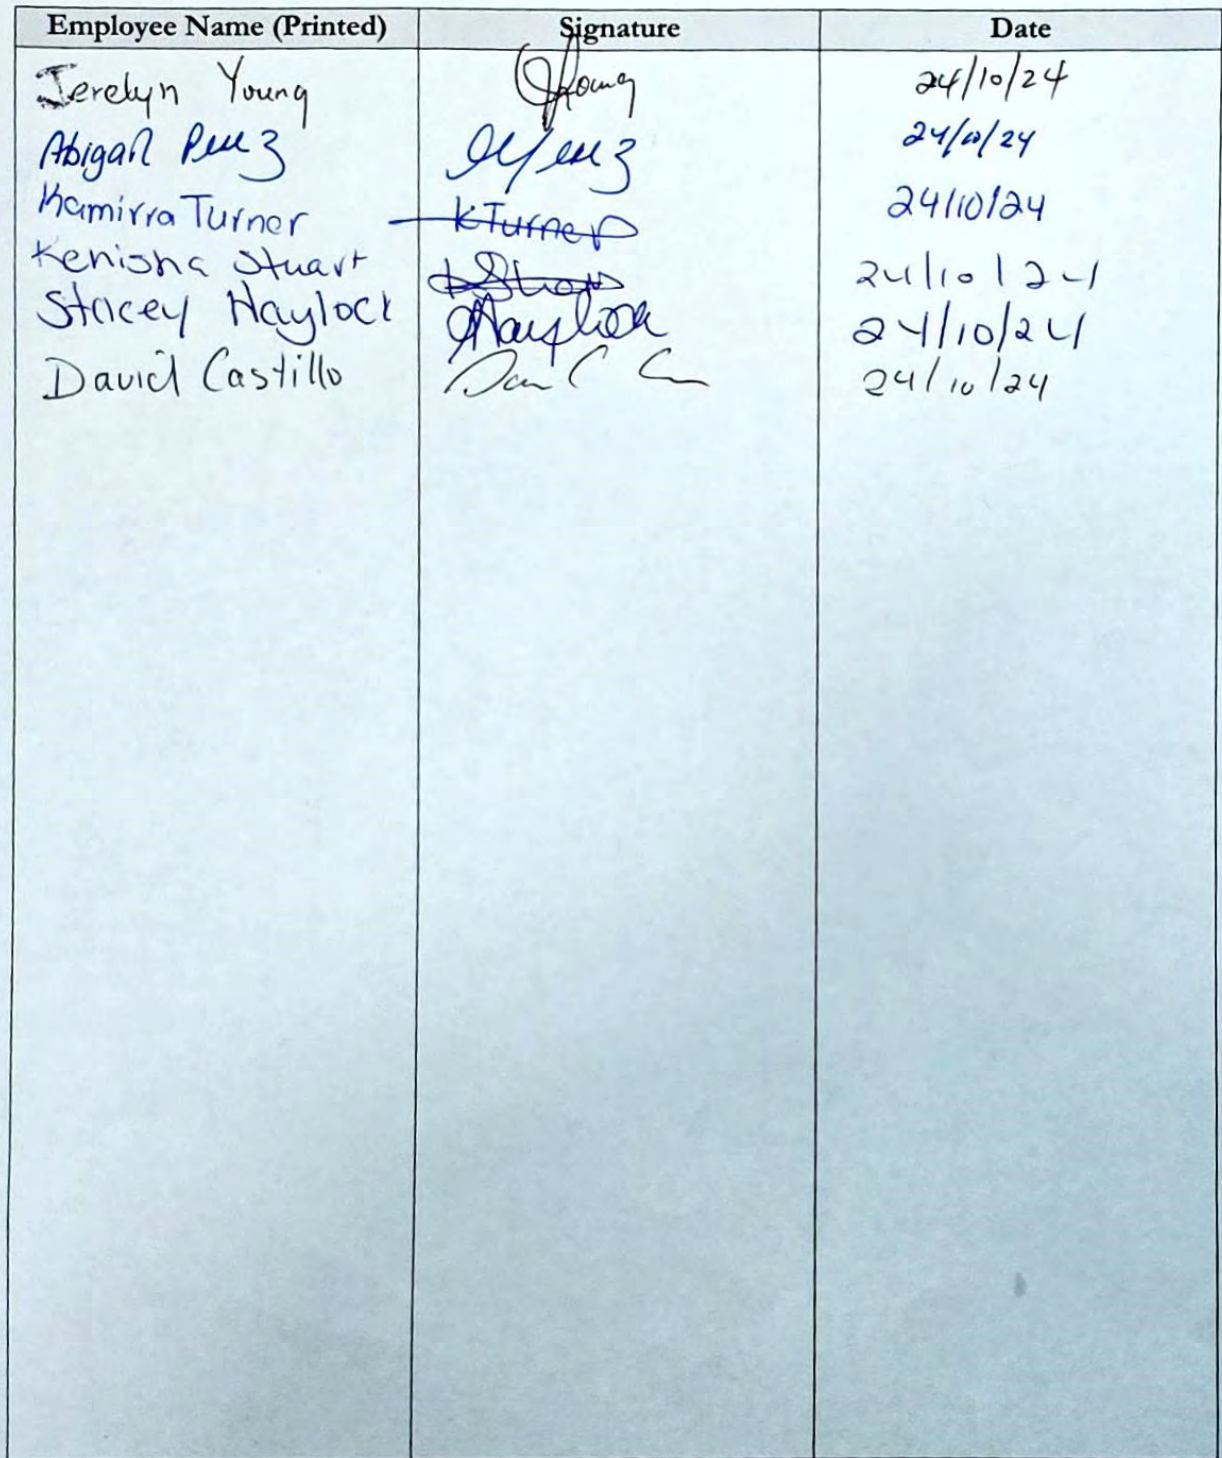 Employee Name (Printed) Signature Date
Jerelyn Young Young 24/10/24
Abigail Perez Perez 24/10/24
Kamirra Turner KTurner 24/10/24
Kenisha Stuart 24/10/24
Stacey Haylock Haylock 24/10/24
David Castillo 24/10/24